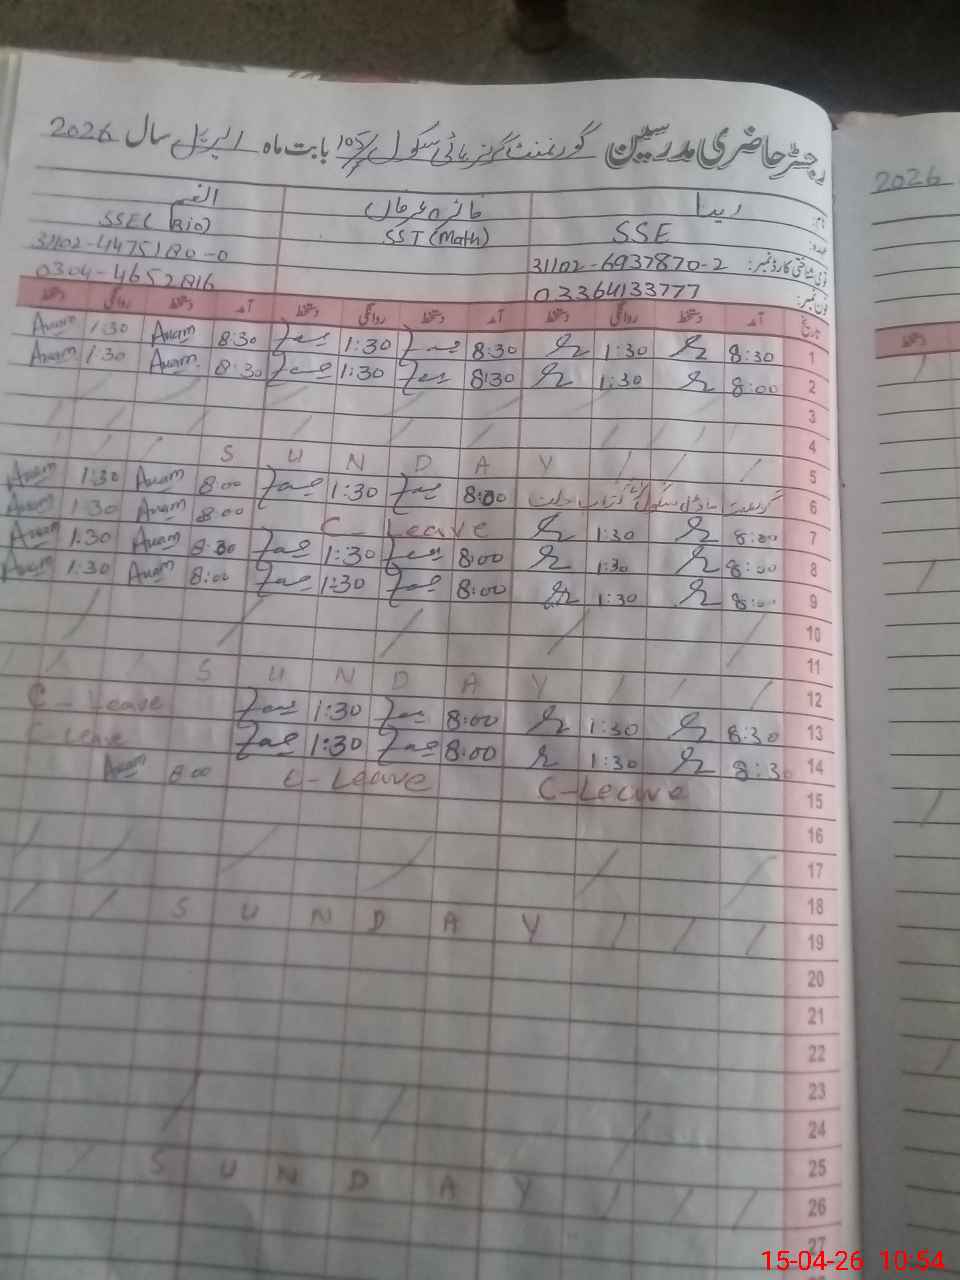 رجسٹر حاضری مدرسین گورنمنٹ گرلز ہائی سکول 105/P بابت ماہ اپریل سال 2026
2026
نام: ریدا فائزہ عرفان
عہدہ: SSE SST (Math) SSE( Bio)
قومی شناختی کارڈ نمبر: 31102-6937870-2 31102-4475180-0
فون نمبر: 03364133777 0304-4652816
تاریخ آمد دستخط روانگی دستخط آمد دستخط روانگی دستخط آمد دستخط روانگی دستخط
1 8:30 1:30 8:30 1:30 8:30 Anam 1:30 Anam
2 8:00 1:30 8:30 1:30 8:30 Anam 1:30 Anam
3
4
5 S U N D A Y
6 8:00 1:30 8:00 Anam 1:30 Anam
7 8:00 1:30 C-Leave 8:00 Anam 1:30 Anam
8 8:00 1:30 8:00 1:30 8:30 Anam 1:30 Anam
9 8:00 1:30 8:00 1:30 8:00 Anam 1:30 Anam
10
11
12 S U N D A Y
13 8:30 1:30 8:00 1:30 C-Leave
14 8:30 1:30 8:00 1:30 C Leave
15 C-Leave C-Leave 8:00 Anam
16
17
18
19 S U N D A Y
20
21
22
23
24
25
26 S U N D A Y
27
15-04-26 10:54